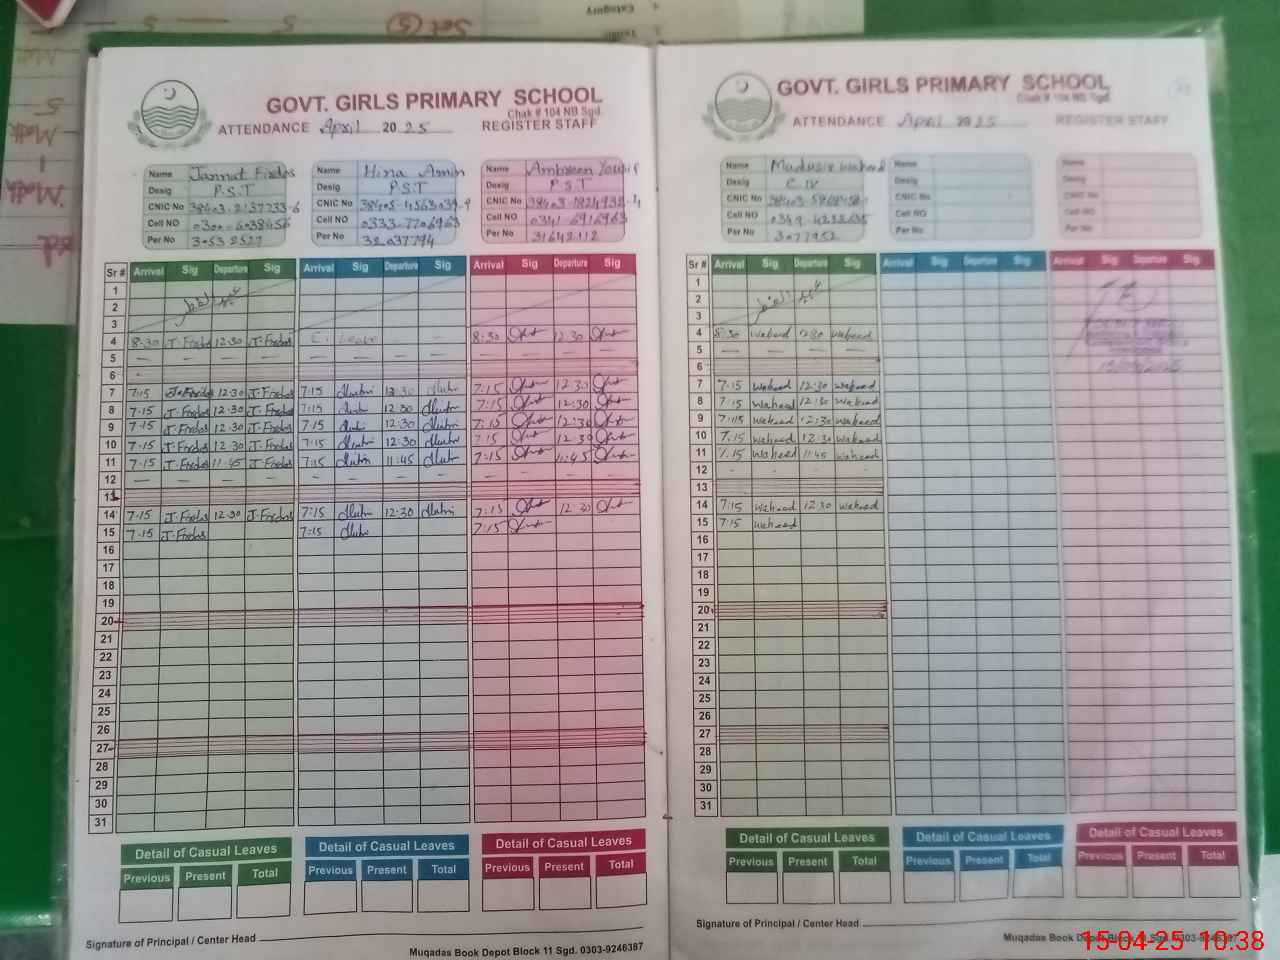 GOVT. GIRLS PRIMARY SCHOOL
Chak # 104 NB Sgd.
ATTENDANCE April 2025 REGISTER STAFF
Name Jannat Firdos
Desig P.S.T
CNIC No 38403-2137733-6
Cell NO 0300-6038456
Per No 30532527
Name Hina Amin
Desig P.S.T
CNIC No
Cell NO 0333-7706963
Per No 32037794
Name Ambreen
Desig P.S.T
CNIC No
Cell NO 0341-6916963
Per No 31642112
Sr # Arrival Sig Departure Sig Arrival Sig Departure Sig Arrival Sig Departure Sig
1
2 عید الفطر
3
4 8:30 J.Firdos 12:30 J.Firdos C. Leave 8:30 12:30
5 — — — — — — — — — — — —
6
7 7:15 J.Firdos 12:30 J.Firdos 7:15 12:30 7:15 12:30
8 7:15 J.Firdos 12:30 J.Firdos 7:15 12:30 7:15 12:30
9 7:15 J.Firdos 12:30 J.Firdos 7:15 12:30 7:15 12:30
10 7:15 J.Firdos 12:30 J.Firdos 7:15 12:30 7:15 12:30
11 7:15 J.Firdos 11:45 J.Firdos 7:15 11:45 7:15 11:45
12 — — — — — — — — — — — —
13
14 7:15 J.Firdos 12:30 J.Firdos 7:15 12:30 7:15 12:30
15 7:15 J.Firdos 7:15 7:15
16
17
18
19
20
21
22
23
24
25
26
27
28
29
30
31
Detail of Casual Leaves Detail of Casual Leaves Detail of Casual Leaves
Previous Present Total Previous Present Total Previous Present Total
Signature of Principal / Center Head
Muqadas Book Depot Block 11 Sgd. 0303-9246387
GOVT. GIRLS PRIMARY SCHOOL
Chak # 104 NB Sgd.
ATTENDANCE April 2025 REGISTER STAFF
Name Waheed
Desig C IV
CNIC No
Cell NO
Per No 3077952
Name
Desig
CNIC No
Cell NO
Per No
Name
Desig
CNIC No
Cell NO
Per No
Sr # Arrival Sig Departure Sig Arrival Sig Departure Sig Arrival Sig Departure Sig
1
2 عید الفطر
3
4 8:30 waheed 12:30 waheed
5 — — — —
6
7 7:15 waheed 12:30 waheed
8 7:15 waheed 12:30 waheed
9 7:15 waheed 12:30 waheed
10 7:15 waheed 12:30 waheed
11 7:15 waheed 11:45 waheed
12 - - - -
13
14 7:15 waheed 12:30 waheed
15 7:15 waheed
16
17
18
19
20
21
22
23
24
25
26
27
28
29
30
31
Detail of Casual Leaves Detail of Casual Leaves Detail of Casual Leaves
Previous Present Total Previous Present Total Previous Present Total
Signature of Principal / Center Head
Muqadas Book Depot Block 11 Sgd. 0303-9246387
15-04-25 10:38